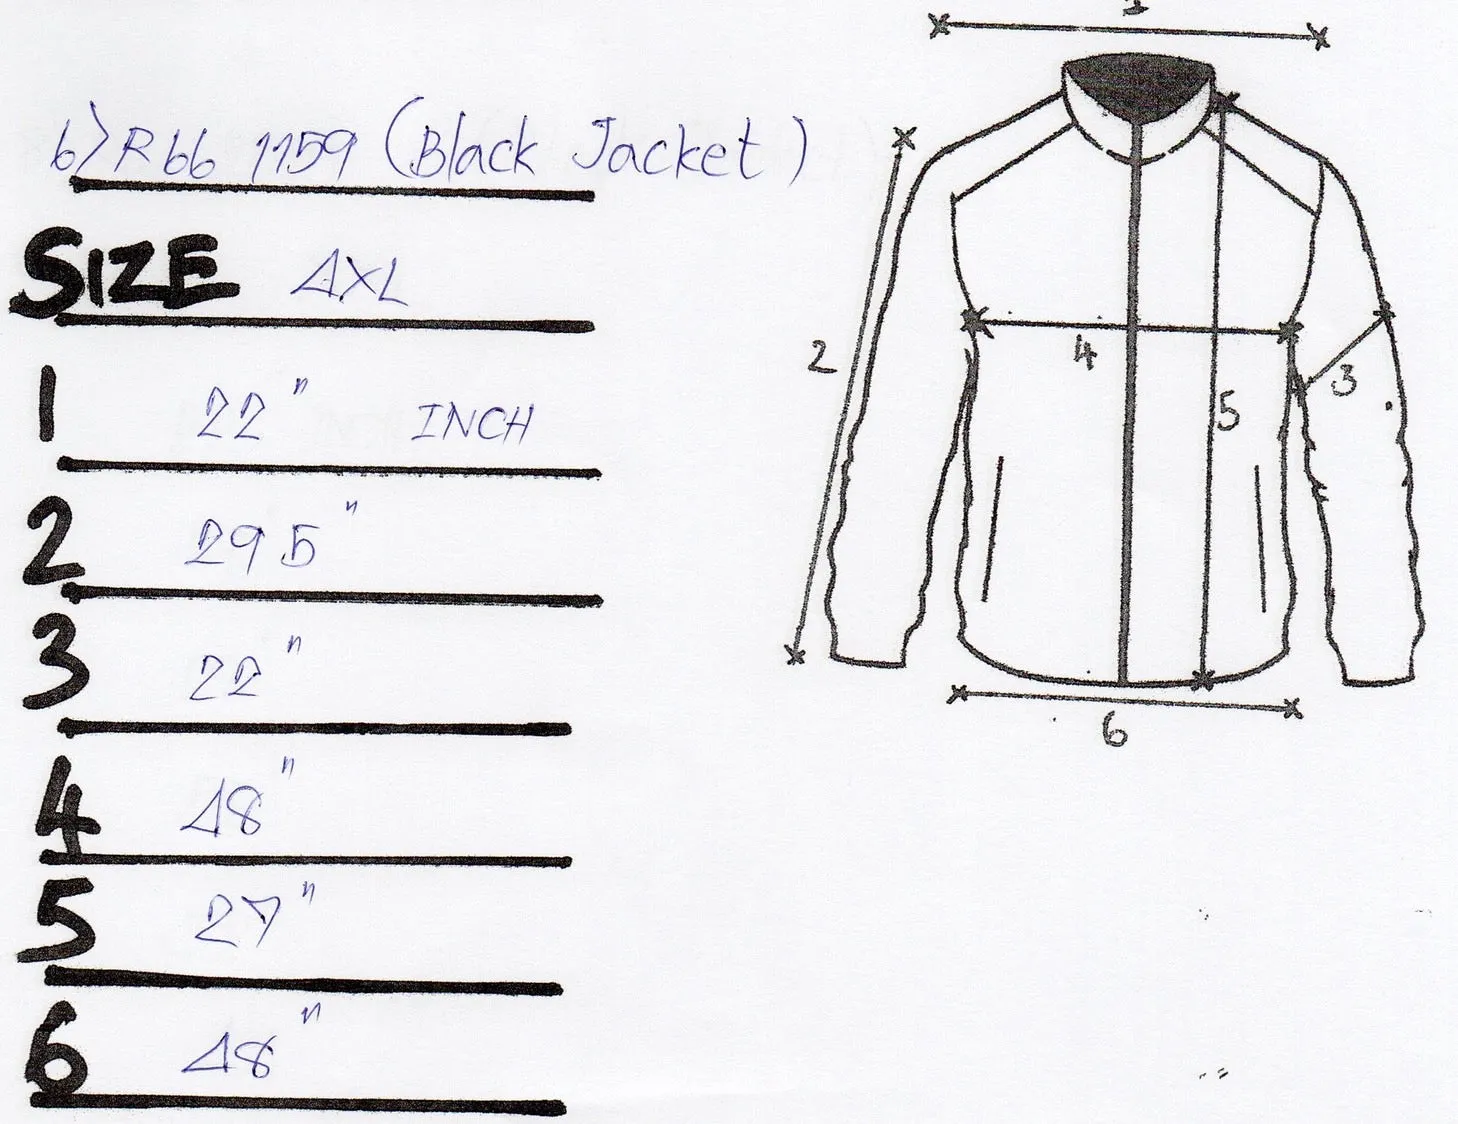 6) R66 1159 (Black Jacket)
SIZE 4XL
1 22" INCH
2 29 5"
3 22"
4 48"
5 27"
6 48"
1
2
4
3
5
6